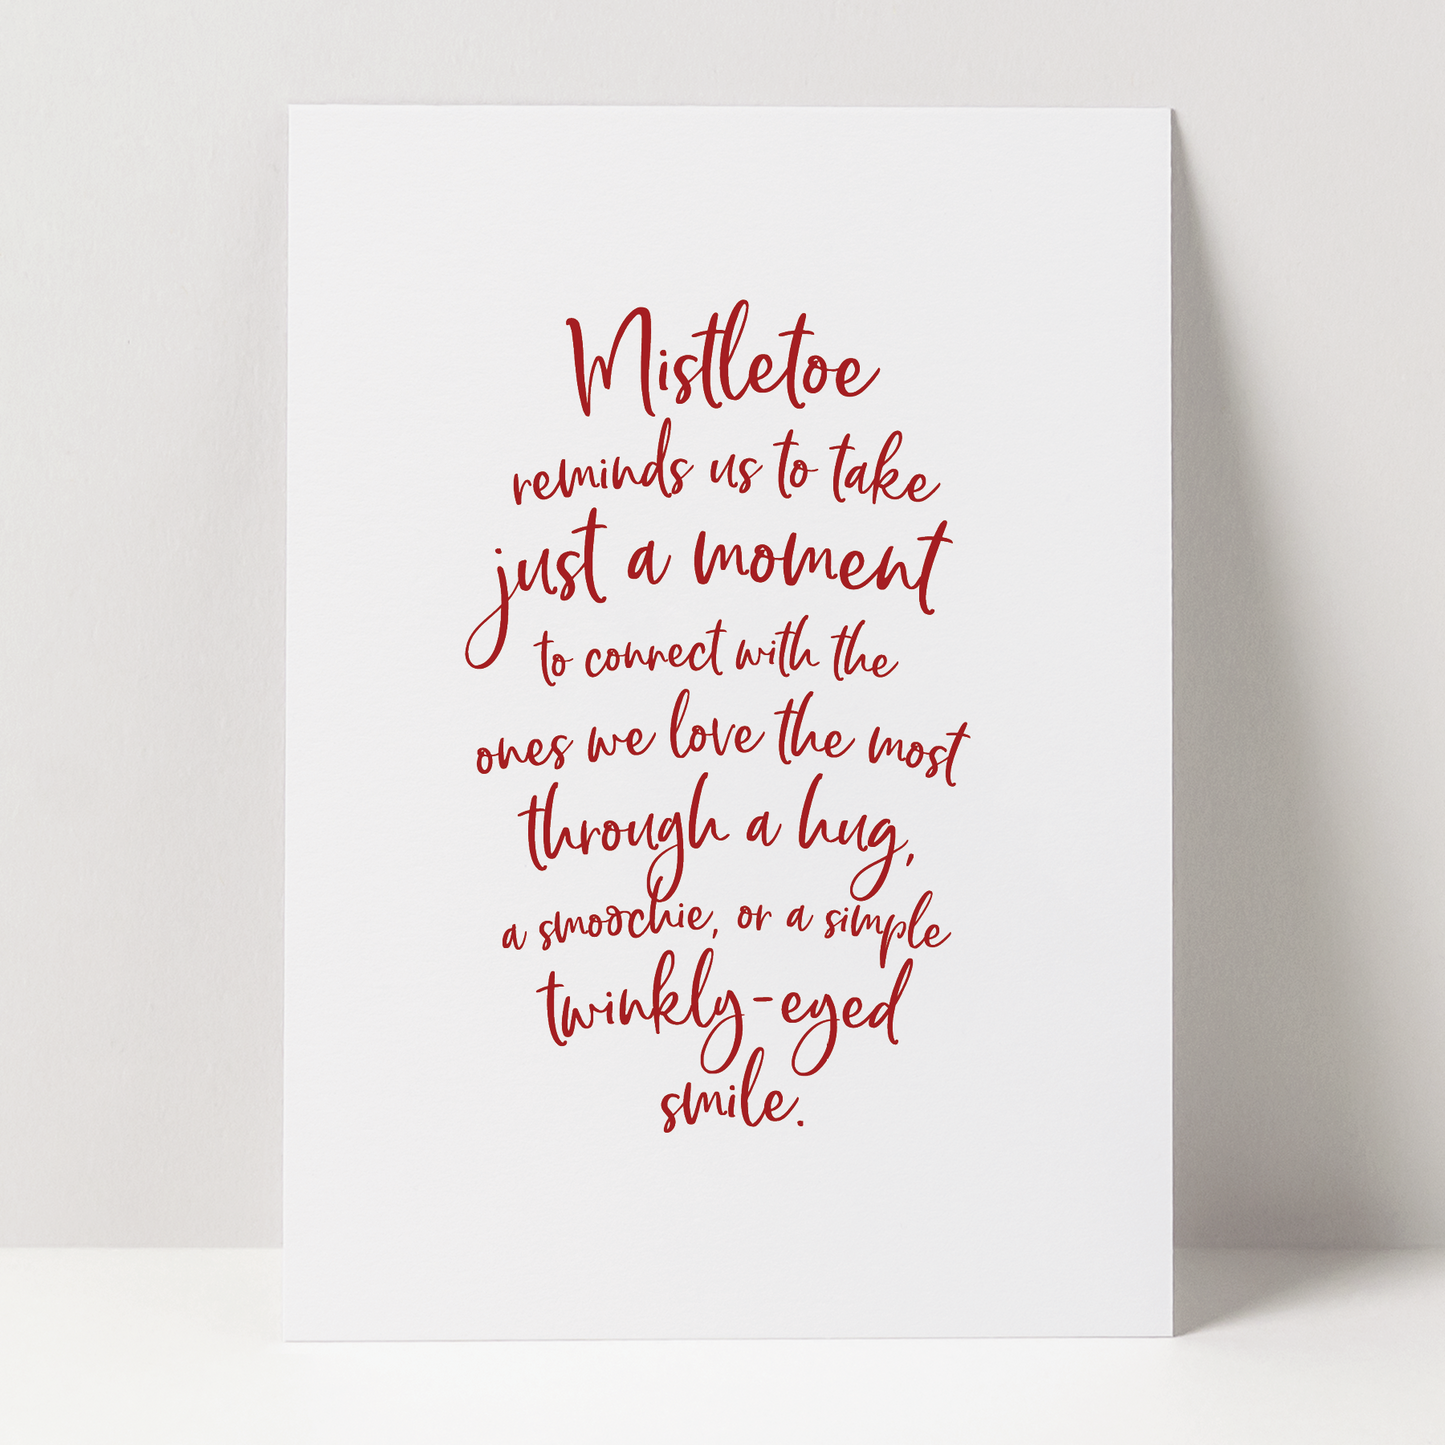 Mistletoe
reminds us to take
just a moment
to connect with the
ones we love the most
through a hug,
a smoochie, or a simple
twinkly-eyed
smile.